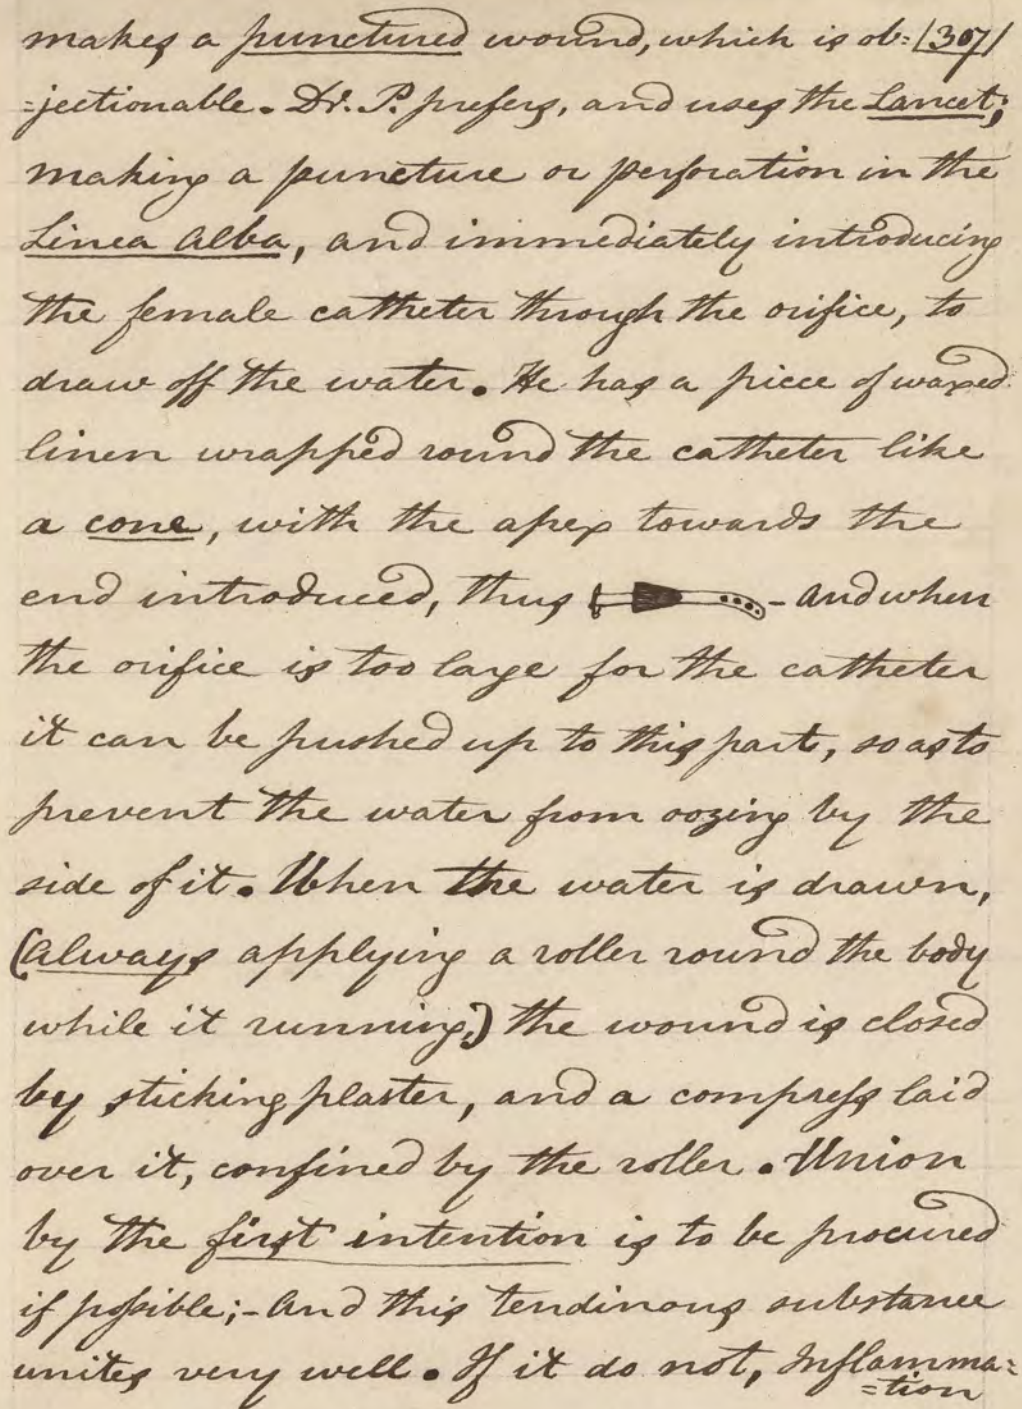 makes a punctured wound, which is ob= |307|
=jectionable. Dr. P. prefers, and uses the Lancet;
making a puncture or perforation in the
Linea Alba, and immediately introducing
the female catheter through the orifice, to
draw off the water. He has a piece of waxed
linen wrapped round the catheter like
a cone, with the apex towards the
end introduced, thus - and when
the orifice is too large for the catheter
it can be pushed up to this part, so as to
prevent the water from oozing by the
side of it. When the water is drawn,
(always applying a roller round the body
while it running;) the wound is closed
by sticking plaster, and a compress laid
over it, confined by the roller. Union
by the first intention is to be procured
if possible; - And this tendinous substance
unites very well. If it do not, Inflamma=
=tion